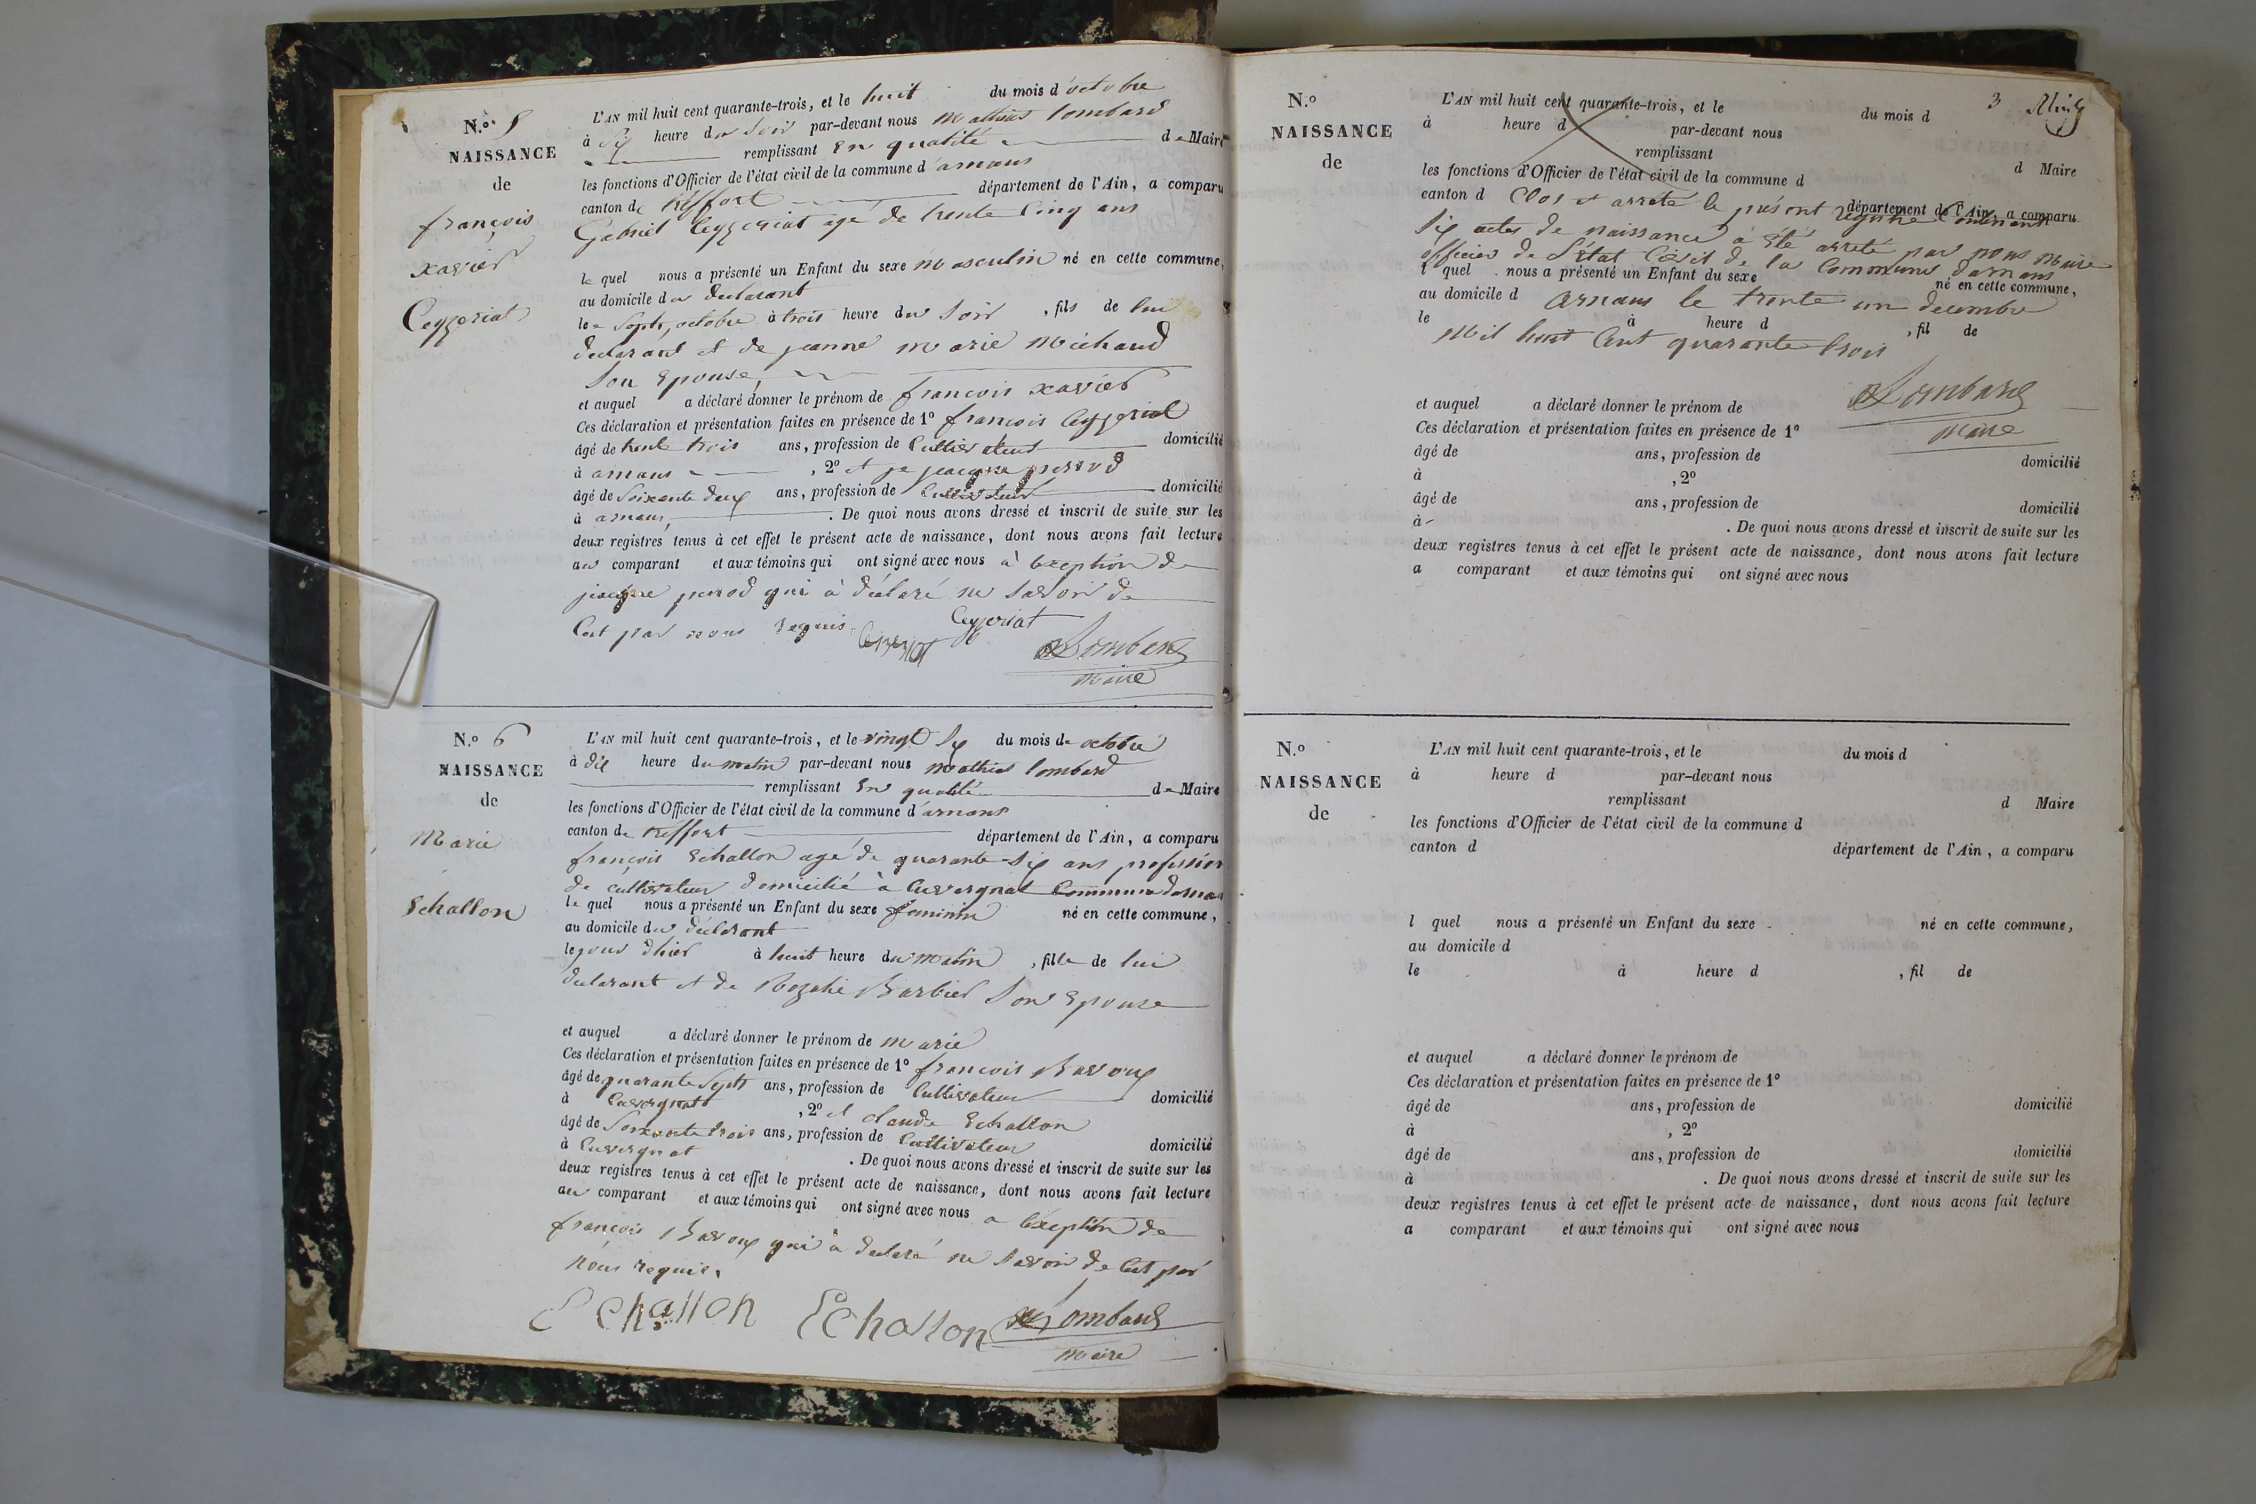 N.º 5
NAISSANCE
de
françois
xavier
Ceyzeriat
L'AN mil huit cent quarante-trois, et le huit du mois d'octobre
à six heure du Soir par-devant nous mathias lombard
remplissant En qualité de Maire
les fonctions d'Officier de l'état civil de la commune d'arnans
canton de treffort département de l'Ain, a comparu
Gabriel Ceyzeriat agé de trente Cinq ans
le quel nous a présenté un Enfant du sexe masculin né en cette commune,
au domicile du declarant
le Sept, octobre à trois heure du Soir, fils de lui
declarant et de jeanne marie michaud
Son Epouse,
et auquel a déclaré donner le prénom de françois xavier
Ces déclaration et présentation faites en présence de 1º françois Ceyzeriat
âgé de trente trois ans, profession de Cultivateur domicilié
à arnans, 2º et jacque perrod
âgé de Soixante deux ans, profession de Cultivateur domicilié
à arnans, . De quoi nous avons dressé et inscrit de suite sur les
deux registres tenus à cet effet le présent acte de naissance, dont nous avons fait lecture
au comparant et aux témoins qui ont signé avec nous à Exeption de
jacque perrod qui à déclaré ne Savoir de
Cet par nous requis.
Ceyzeriat
Lombard
maire
N.º 6
NAISSANCE
de
Marie
Echallon
L'AN mil huit cent quarante-trois, et le vingt Six du mois de octobre
à dix heure du matin par-devant nous mathias lombard
remplissant En qualité de Maire
les fonctions d'Officier de l'état civil de la commune d'arnans
canton de treffort département de l'Ain, a comparu
françois Echallon agé de quarante-Six ans, profession
de cultivateur domicilié à Cuvergnat Commune darnans
le quel nous a présenté un Enfant du sexe feminin né en cette commune,
au domicile du déclarant
le jour d'hier à huit heure du matin, fille de lui
declarant et de Rozalie Barbier Son Epouse
et auquel a déclaré donner le prénom de marie
Ces déclaration et présentation faites en présence de 1º françois Bavoux
âgé de quarante Sept ans, profession de Cultivateur domicilié
à Cuvergnat, 2º et claude Echallon
âgé de Soixante trois ans, profession de Cultivateur domicilié
à Cuvergnat . De quoi nous avons dressé et inscrit de suite sur les
deux registres tenus à cet effet le présent acte de naissance, dont nous avons fait lecture
au comparant et aux témoins qui ont signé avec nous a Exeption de
françois Bavoux qui à declaré ne Savoir de Cet par
nous requis.
Echallon Echallon Lombard
maire
3
N.º
NAISSANCE
de
L'AN mil huit cent quarante-trois, et le du mois d
à heure d par-devant nous
remplissant d Maire
les fonctions d'Officier de l'état civil de la commune d
canton d département de l'Ain, a comparu
Clos et arreté le présent registre Contenant
Six actes de naissance à été arreté par nous maire
officier de l'état Civil de la Commune darnans
l quel nous a présenté un Enfant du sexe né en cette commune,
au domicile d
arnans le trente un decembre
le à heure d , fil de
mil huit Cent quarante trois
Lombard
maire
et auquel a déclaré donner le prénom de
Ces déclaration et présentation faites en présence de 1º
âgé de ans, profession de domicilié
à , 2º
âgé de ans, profession de domicilié
à . De quoi nous avons dressé et inscrit de suite sur les
deux registres tenus à cet effet le présent acte de naissance, dont nous avons fait lecture
a comparant et aux témoins qui ont signé avec nous
N.º
NAISSANCE
de
L'AN mil huit cent quarante-trois, et le du mois d
à heure d par-devant nous
remplissant d Maire
les fonctions d'Officier de l'état civil de la commune d
canton d département de l'Ain, a comparu
l quel nous a présenté un Enfant du sexe né en cette commune,
au domicile d
le à heure d , fil de
et auquel a déclaré donner le prénom de
Ces déclaration et présentation faites en présence de 1º
âgé de ans, profession de domicilié
à , 2º
âgé de ans, profession de domicilié
à . De quoi nous avons dressé et inscrit de suite sur les
deux registres tenus à cet effet le présent acte de naissance, dont nous avons fait lecture
a comparant et aux témoins qui ont signé avec nous